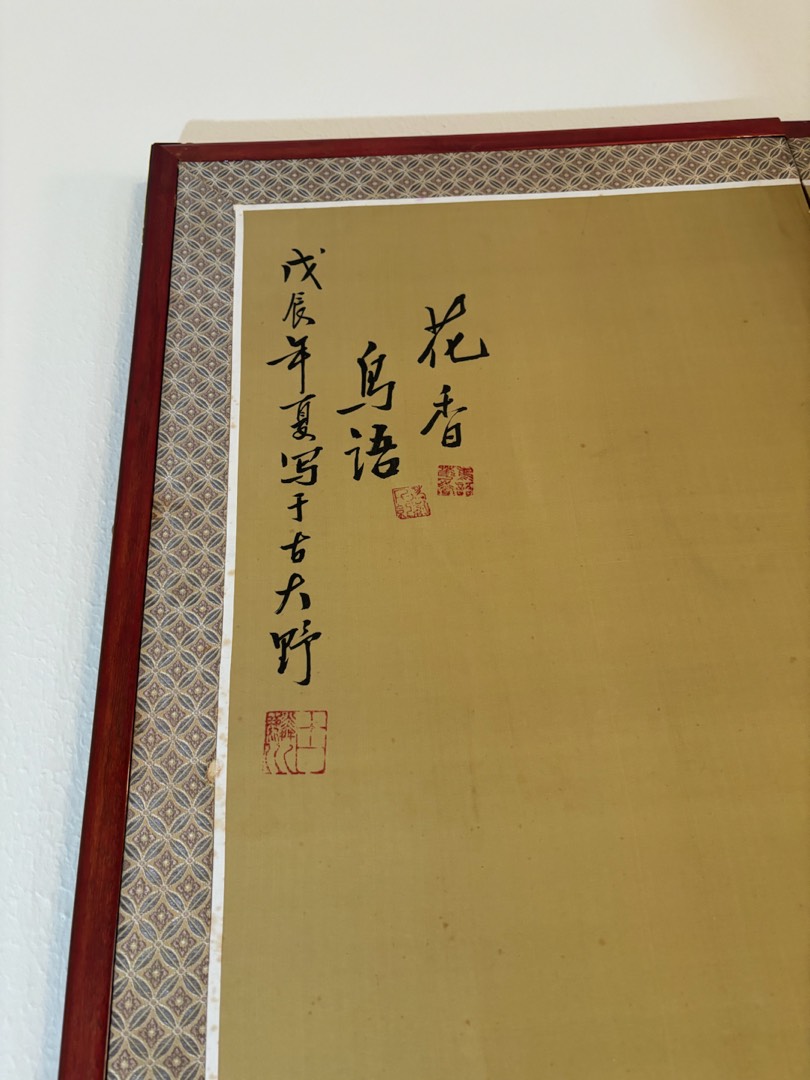 花香
鸟语
戊辰年夏写于古大野